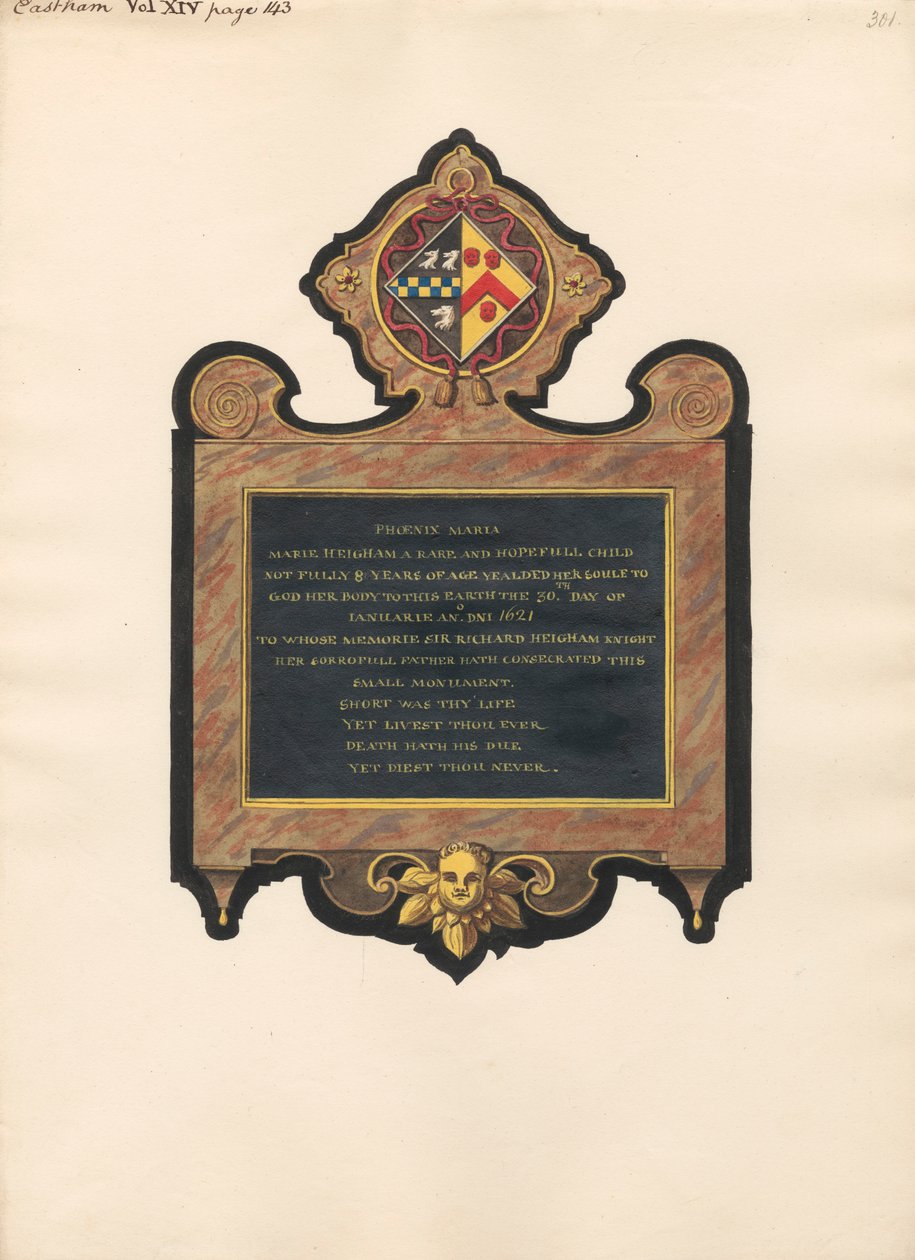 Eastham Vol XIV page 143
301.
PHŒNIX MARIA
MARIE HEIGHAM A RARE AND HOPEFULL CHILD
NOT FULLY 8 YEARS OF AGE YEALDED HER SOULE TO
GOD HER BODY TO THIS EARTH THE 30.TH DAY OF
IANUARIE AN.O DNI 1621
TO WHOSE MEMORIE SIR RICHARD HEIGHAM KNIGHT
HER SORROFULL FATHER HATH CONSECRATED THIS
SMALL MONUMENT.
SHORT WAS THY LIFE
YET LIVEST THOU EVER
DEATH HATH HIS DUE
YET DIEST THOU NEVER.